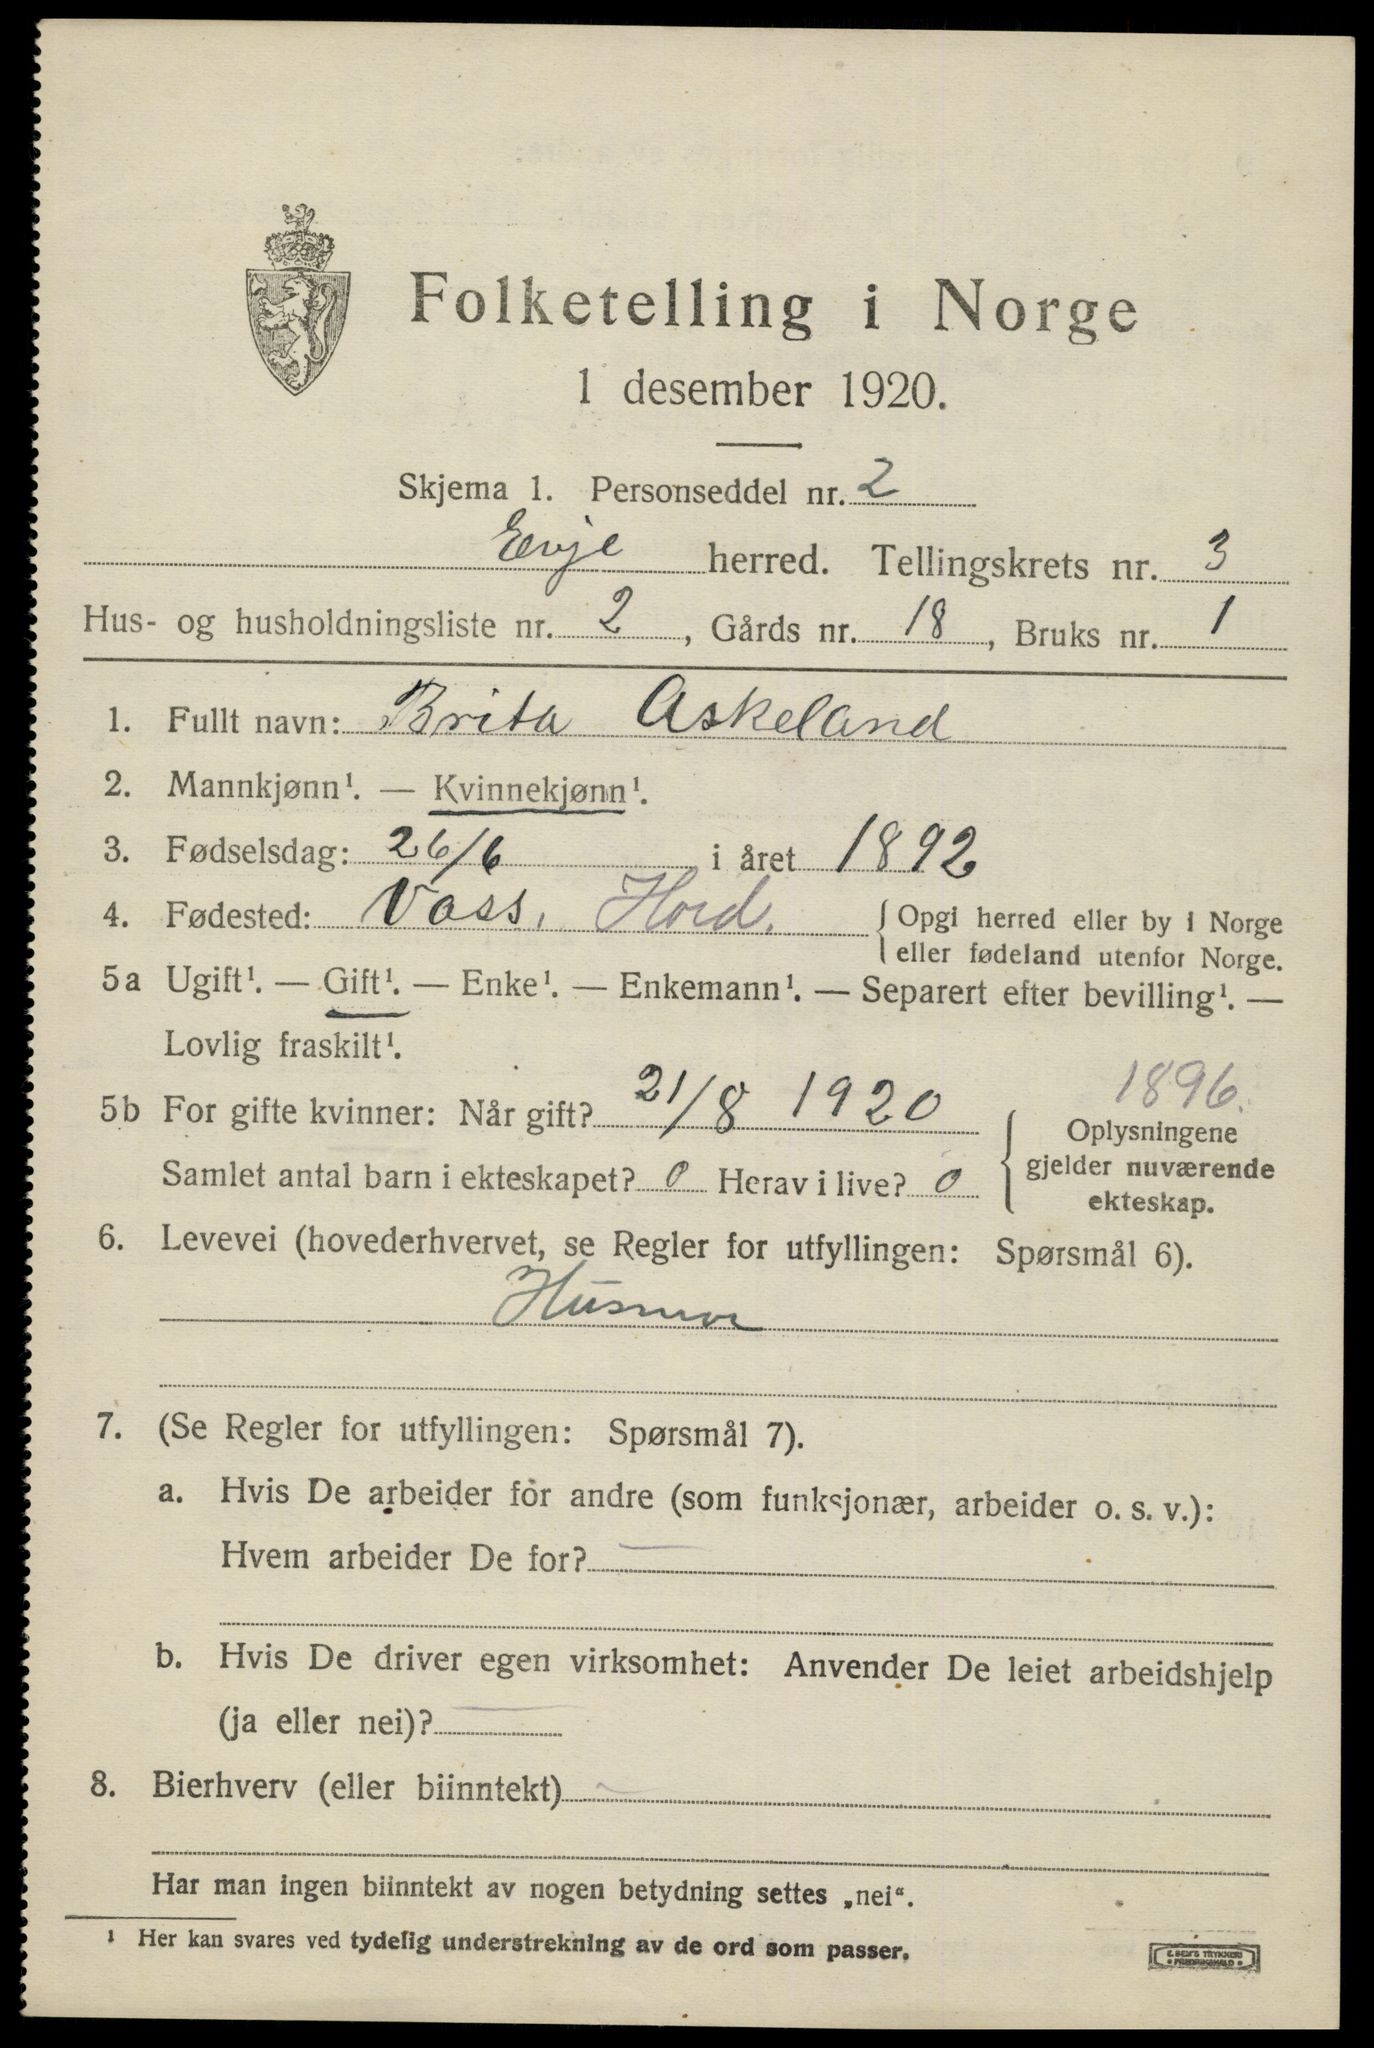 Folketelling i Norge
1 desember 1920.
Skjema 1. Personseddel nr. 2
Evje herred. Tellingskrets nr. 3
Hus- og husholdningsliste nr. 2, Gårds nr. 18, Bruks nr. 1
1. Fullt navn: Brita Askeland
2. Mannkjønn¹. — Kvinnekjønn¹.
3. Fødselsdag: 26/6 i året 1892
4. Fødested: Voss, Hord. { Opgi herred eller by i Norge
eller fødeland utenfor Norge.
5a Ugift¹. — Gift¹. — Enke¹. — Enkemann¹. — Separert efter bevilling¹. —
Lovlig fraskilt¹.
1896.
5b For gifte kvinner: Når gift? 21/8 1920 { Oplysningene
Samlet antal barn i ekteskapet? 0 Herav i live? 0 gjelder nuværende
ekteskap.
6. Levevei (hovederhvervet, se Regler for utfyllingen: Spørsmål 6).
Husmor
7. (Se Regler for utfyllingen: Spørsmål 7).
a. Hvis De arbeider for andre (som funksjonær, arbeider o. s. v.):
Hvem arbeider De for? —
b. Hvis De driver egen virksomhet: Anvender De leiet arbeidshjelp
(ja eller nei)? —
8. Bierhverv (eller biinntekt) —
Har man ingen biinntekt av nogen betydning settes „nei“.
¹ Her kan svares ved tydelig understrekning av de ord som passer.
E. SEM'S TRYKKERI
• FREDRIKSHALD •